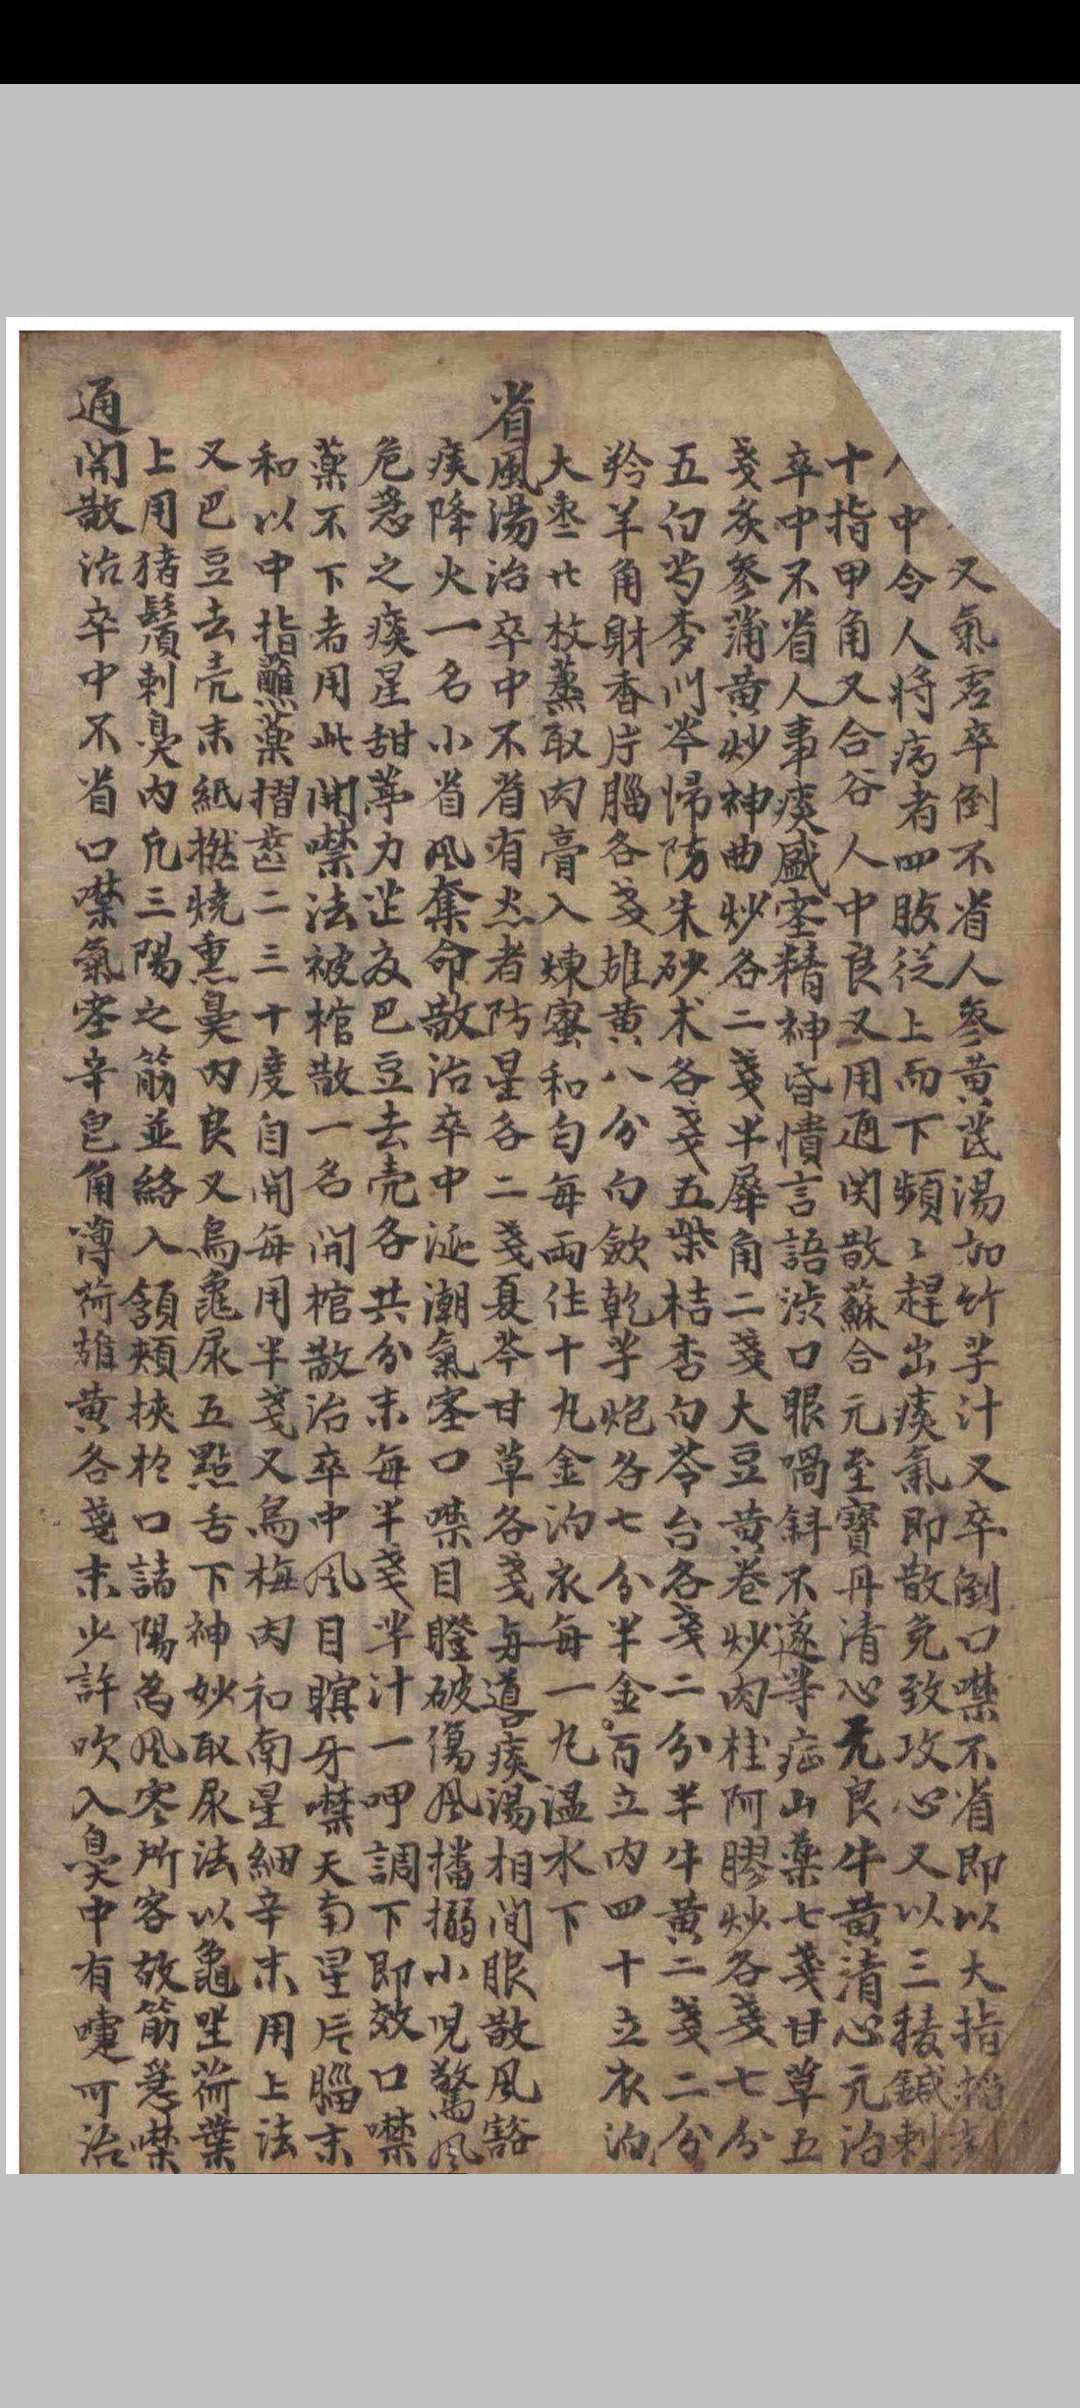 又氣虛卒倒不省人參黃芪湯加竹芋汁又卒倒口噤不省即以大指掐刺
人中令人將病者四肢從上而下頻〻趕出痰氣即散免致攻心又以三稜鍼刺
十指甲角又合谷人中良又用通関散蘇合元至寶丹清心元良牛黃清心元治
卒中不省人事痰盛塞精神昏憒言語渋口眼喎斜不遂等症山藥七戔甘草五
戔炙參蒲黃炒神曲炒各二戔半犀角二戔大豆黃卷炒肉桂阿膠炒各戔七分
五白芍麥川芩帰防朱砂朮各戔五柴桔杏白苓台各戔二分半牛黃二戔二分
羚羊角財香片腦各戔雄黃八分白歛乾芋炮各七分半金百立內四十立衣泊
大枣廿枚蒸取肉膏入煉蜜和匀每両作十九金泊衣每一九温水下
省風湯治卒中不省有炁者防星各二戔夏芩甘草各戔与導痰湯相间服散風豁
痰降火一名小省风奪命散治卒中涎潮氣塞口噤目瞪破傷风搐搦小児驚风
危急之痰星甜葶力芷夜巴豆去壳各共分末每半戔半汁一呷調下即效口噤
藥不下者用此開噤法被棺散一名開棺散治卒中风目瞑牙噤天南星片腦末
和以中指蘸藥摺齒二三十度自開每用半戔又烏梅肉和南星細辛末用上法
又巴豆去壳末紙撚燒熏鼻內良又烏龜尿五點舌下神妙取尿法以龜坐荷葉
上用猪鬃刺鼻內凢三陽之筋並絡入頷頰挾於口諸陽為风寒所客故筋急噤
通開散治卒中不省口噤氣塞辛皂角薄荷雄黃各戔末少許吹入鼻中有嚏可治